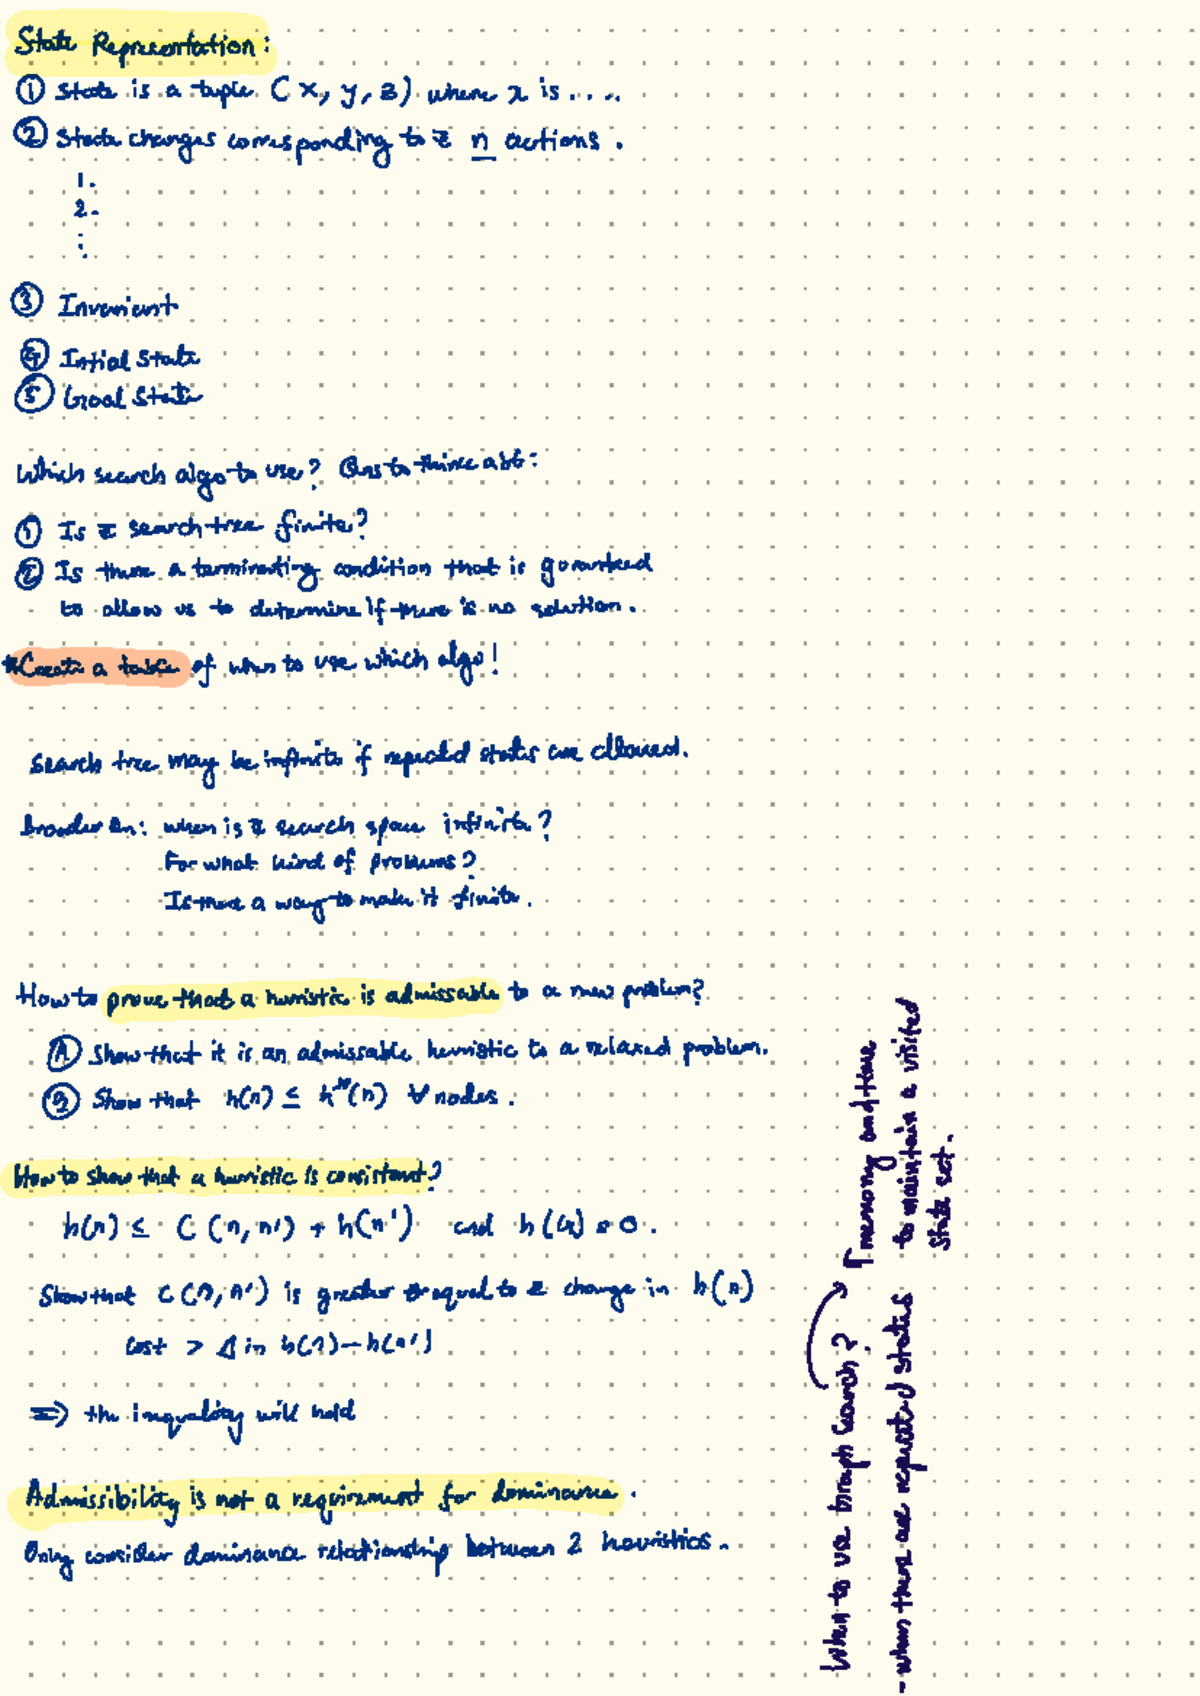 State Representation:
① State is a tuple (x, y, z) where x is ....
② State changes corresponding to n actions.
1.
2.
:
③ Invariant
④ Intial State
⑤ Goal State
Which search algo to use? Qns to think abt:
① Is search tree finite?
② Is there a terminating condition that is guranteed
to allow us to determine if there is no solution.
*Create a table of when to use which algo!
Search tree may be infinite if repeated states are allowed.
Broader Qn: when is search space infinite?
For what kind of problems?
Is there a way to make it finite.
How to prove that a heuristic is admissable to a new problem?
① Show that it is an admissable heuristic to a relaxed problem.
② Show that h(n) ≤ h*(n) ∀ nodes.
How to show that a heuristic is consistent?
h(n) ≤ C(n, n') + h(n') and h(G) = 0.
Show that C(n, n') is greater or equal to change in h(n)
Cost > Δ in h(n) - h(n')
=> the inequality will hold
Admissibility is not a requirement for dominance.
Only consider dominance relationship between 2 heuristics.
When to use Graph Search? ↑ memory and time
- when there are repeated states to maintain a visited
state set.